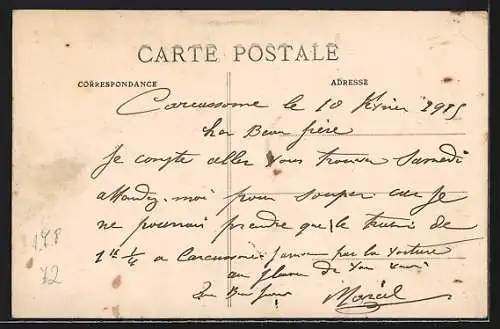 CARTE POSTALE
CORRESPONDANCE
ADRESSE
Carcassonne le 10 février 1915
Cher Beau frère
Je compte aller vous trouver Samedi
attendez-moi pour souper car je
ne pourrai prendre que le train de
1h ¼ a Carcassonne par la voiture
au de
Ton Beau frère Marcel
178
12